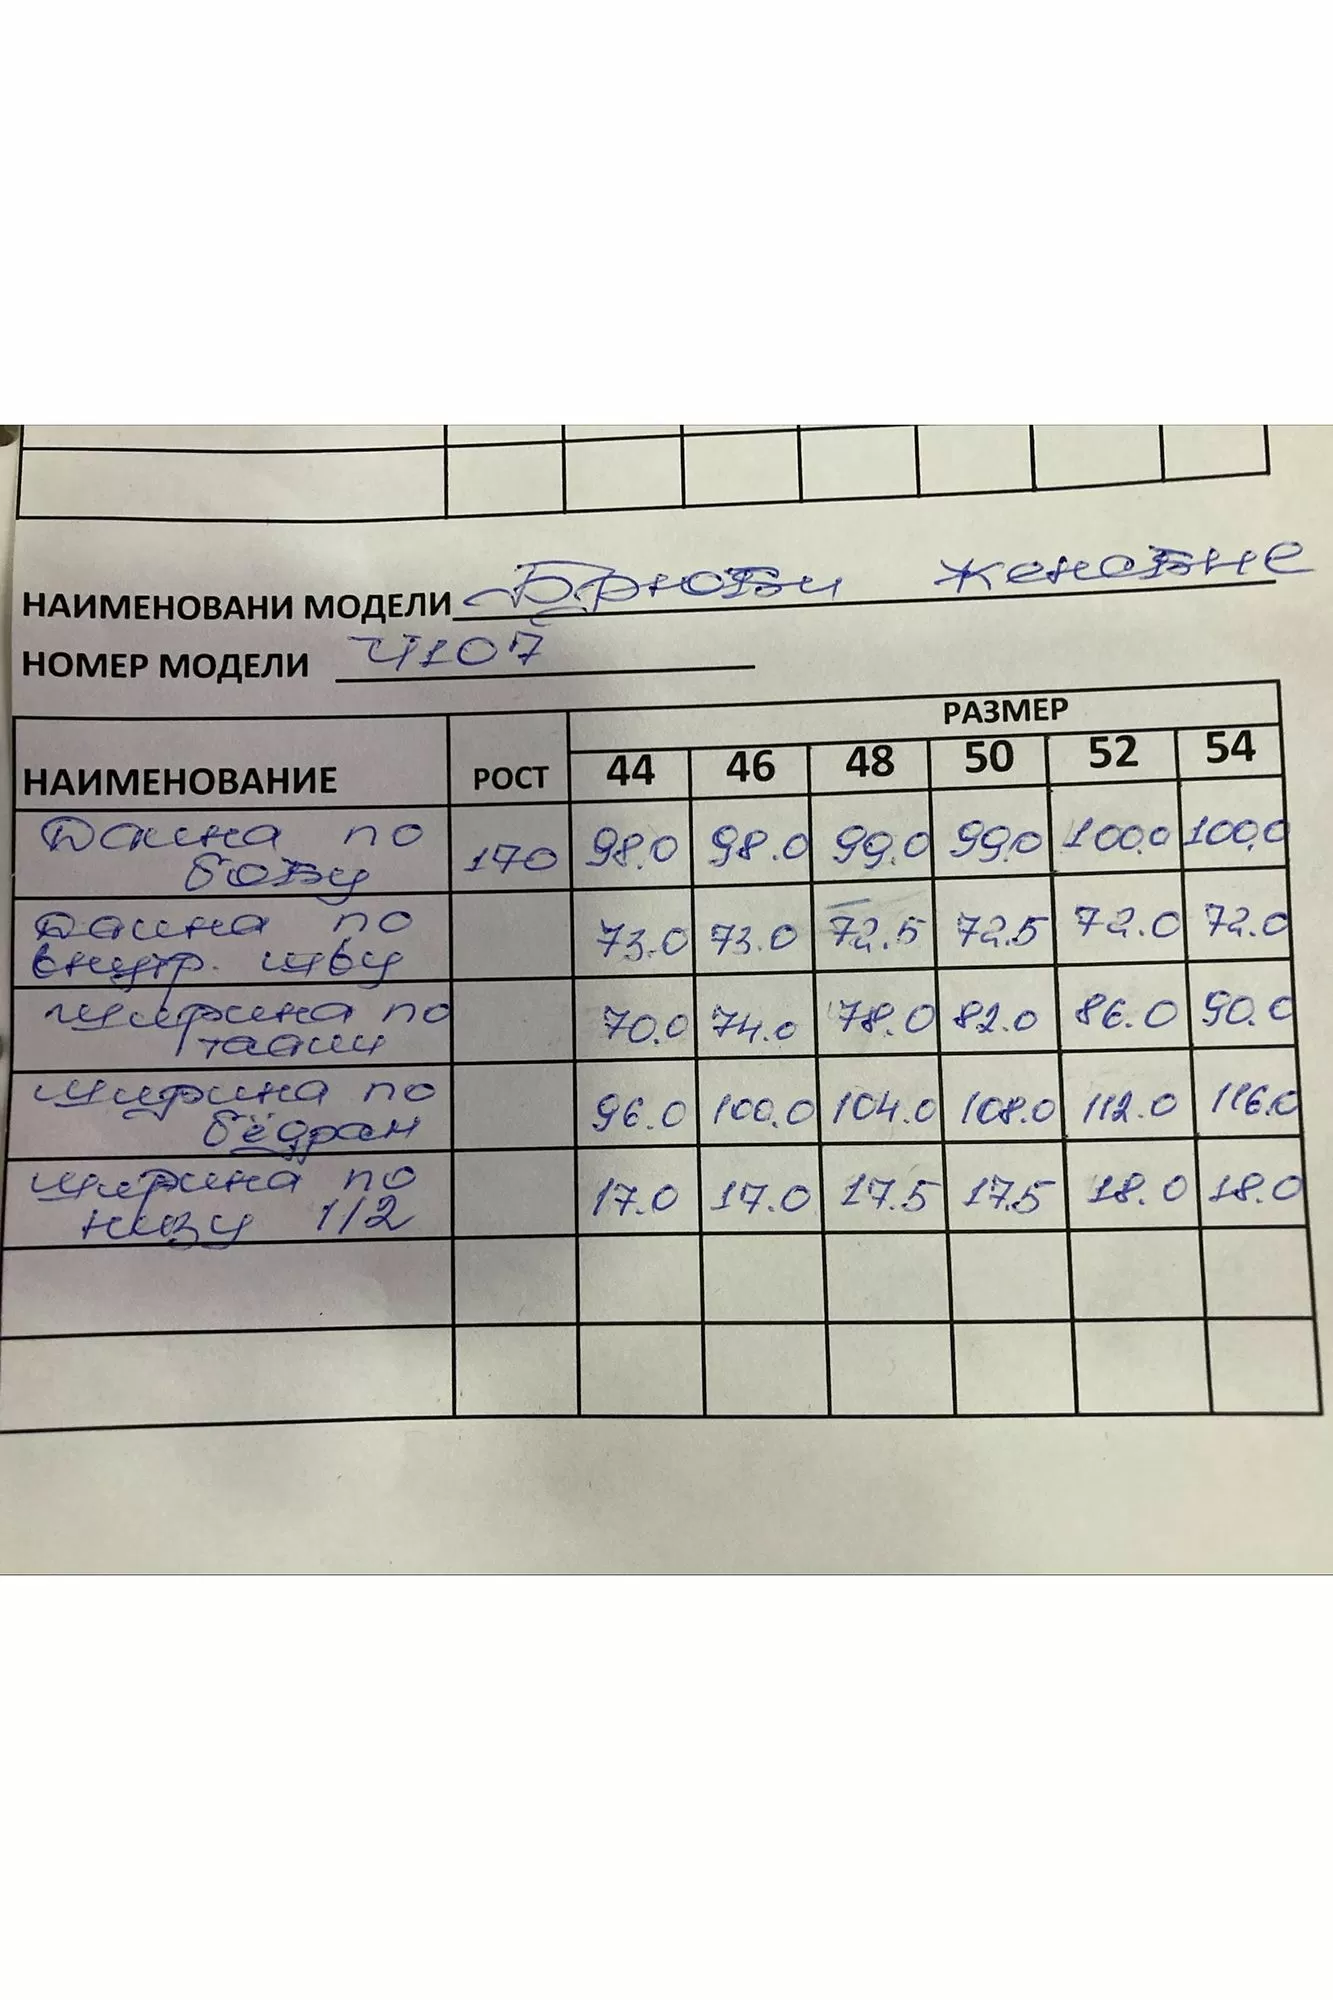 НАИМЕНОВАНИ МОДЕЛИ Брюки женские
НОМЕР МОДЕЛИ 4107
РАЗМЕР
НАИМЕНОВАНИЕ РОСТ 44 46 48 50 52 54
Длина по
боку 170 98.0 98.0 99.0 99.0 100.0 100.0
Длина по
внутр. шву 73.0 73.0 72.5 72.5 72.0 72.0
ширина по
талии 70.0 74.0 78.0 82.0 86.0 90.0
ширина по
бёдрам 96.0 100.0 104.0 108.0 112.0 116.0
ширина по
низу 1/2 17.0 17.0 17.5 17.5 18.0 18.0